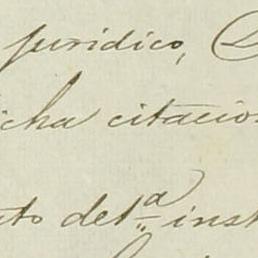 juridico,
icha citacio
to det.ª inst